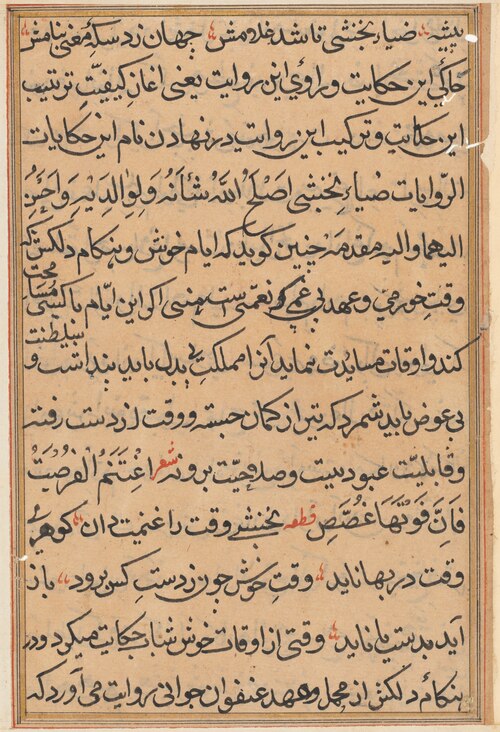 پیشه ضیاء نخشبی تا شد غلامش جهان زد سکه معنی بنامش
حاکی این حکایت و راوی این روایت یعنی اغاز کیفیت ترتیب
این حکایت و ترکیب این روایت در نهادن نام این حکایات
الروایات ضیاء نخشبی اصلح الله شأنه ولوالدیه واحسن
الیهما والیه مقدمه چنین گوید که ایام خوش و هنگام دلکش که
وقت خورمی و عهد بی غمی کو نعمتی است اکر این ایام با کسی
کند و اوقات نماید آنرا مملکت بی بدل باید پنداشت و
بی عوض باید شمرد که تیر از کمان جسته و وقت از دست رفته
و قابلیت نیست وصلاحیت برو نه شعر اغتنم الفرصت
فان فوتها غصص قطعه نخشبی وقت را غنیمت دان کوهری
وقت در بها ناید وقت خوش چون ز دست کس برود باز
آید بدست یا ناید وقتی از اوقات خوش شاب حکایت میکرد و در
هنکام دلکش از و عهد عنفوان جوانی روایت می آورد که